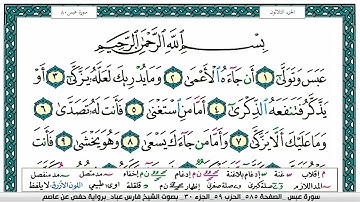 الجزء الثلاثون
سورة عبس ٨٠
بِسْمِ اللَّهِ الرَّحْمَٰنِ الرَّحِيمِ
عَبَسَ وَتَوَلَّىٰ ١ أَن جَاءَهُ الْأَعْمَىٰ ٢ وَمَا يُدْرِيكَ لَعَلَّهُ يَزَّكَّىٰ ٣ أَوْ
يَذَّكَّرُ فَتَنفَعَهُ الذِّكْرَىٰ ٤ أَمَّا مَنِ اسْتَغْنَىٰ ٥ فَأَنتَ لَهُ تَصَدَّىٰ ٦
وَمَا عَلَيْكَ أَلَّا يَزَّكَّىٰ ٧ وَأَمَّا مَن جَاءَكَ يَسْعَىٰ ٨ وَهُوَ يَخْشَىٰ ٩ فَأَنتَ
سورة عبس الصفحة ٥٨٥ الحزب ٥٩ الجزء ٣٠ بصوت الشيخ فارس عباد برواية حفص عن عاصم